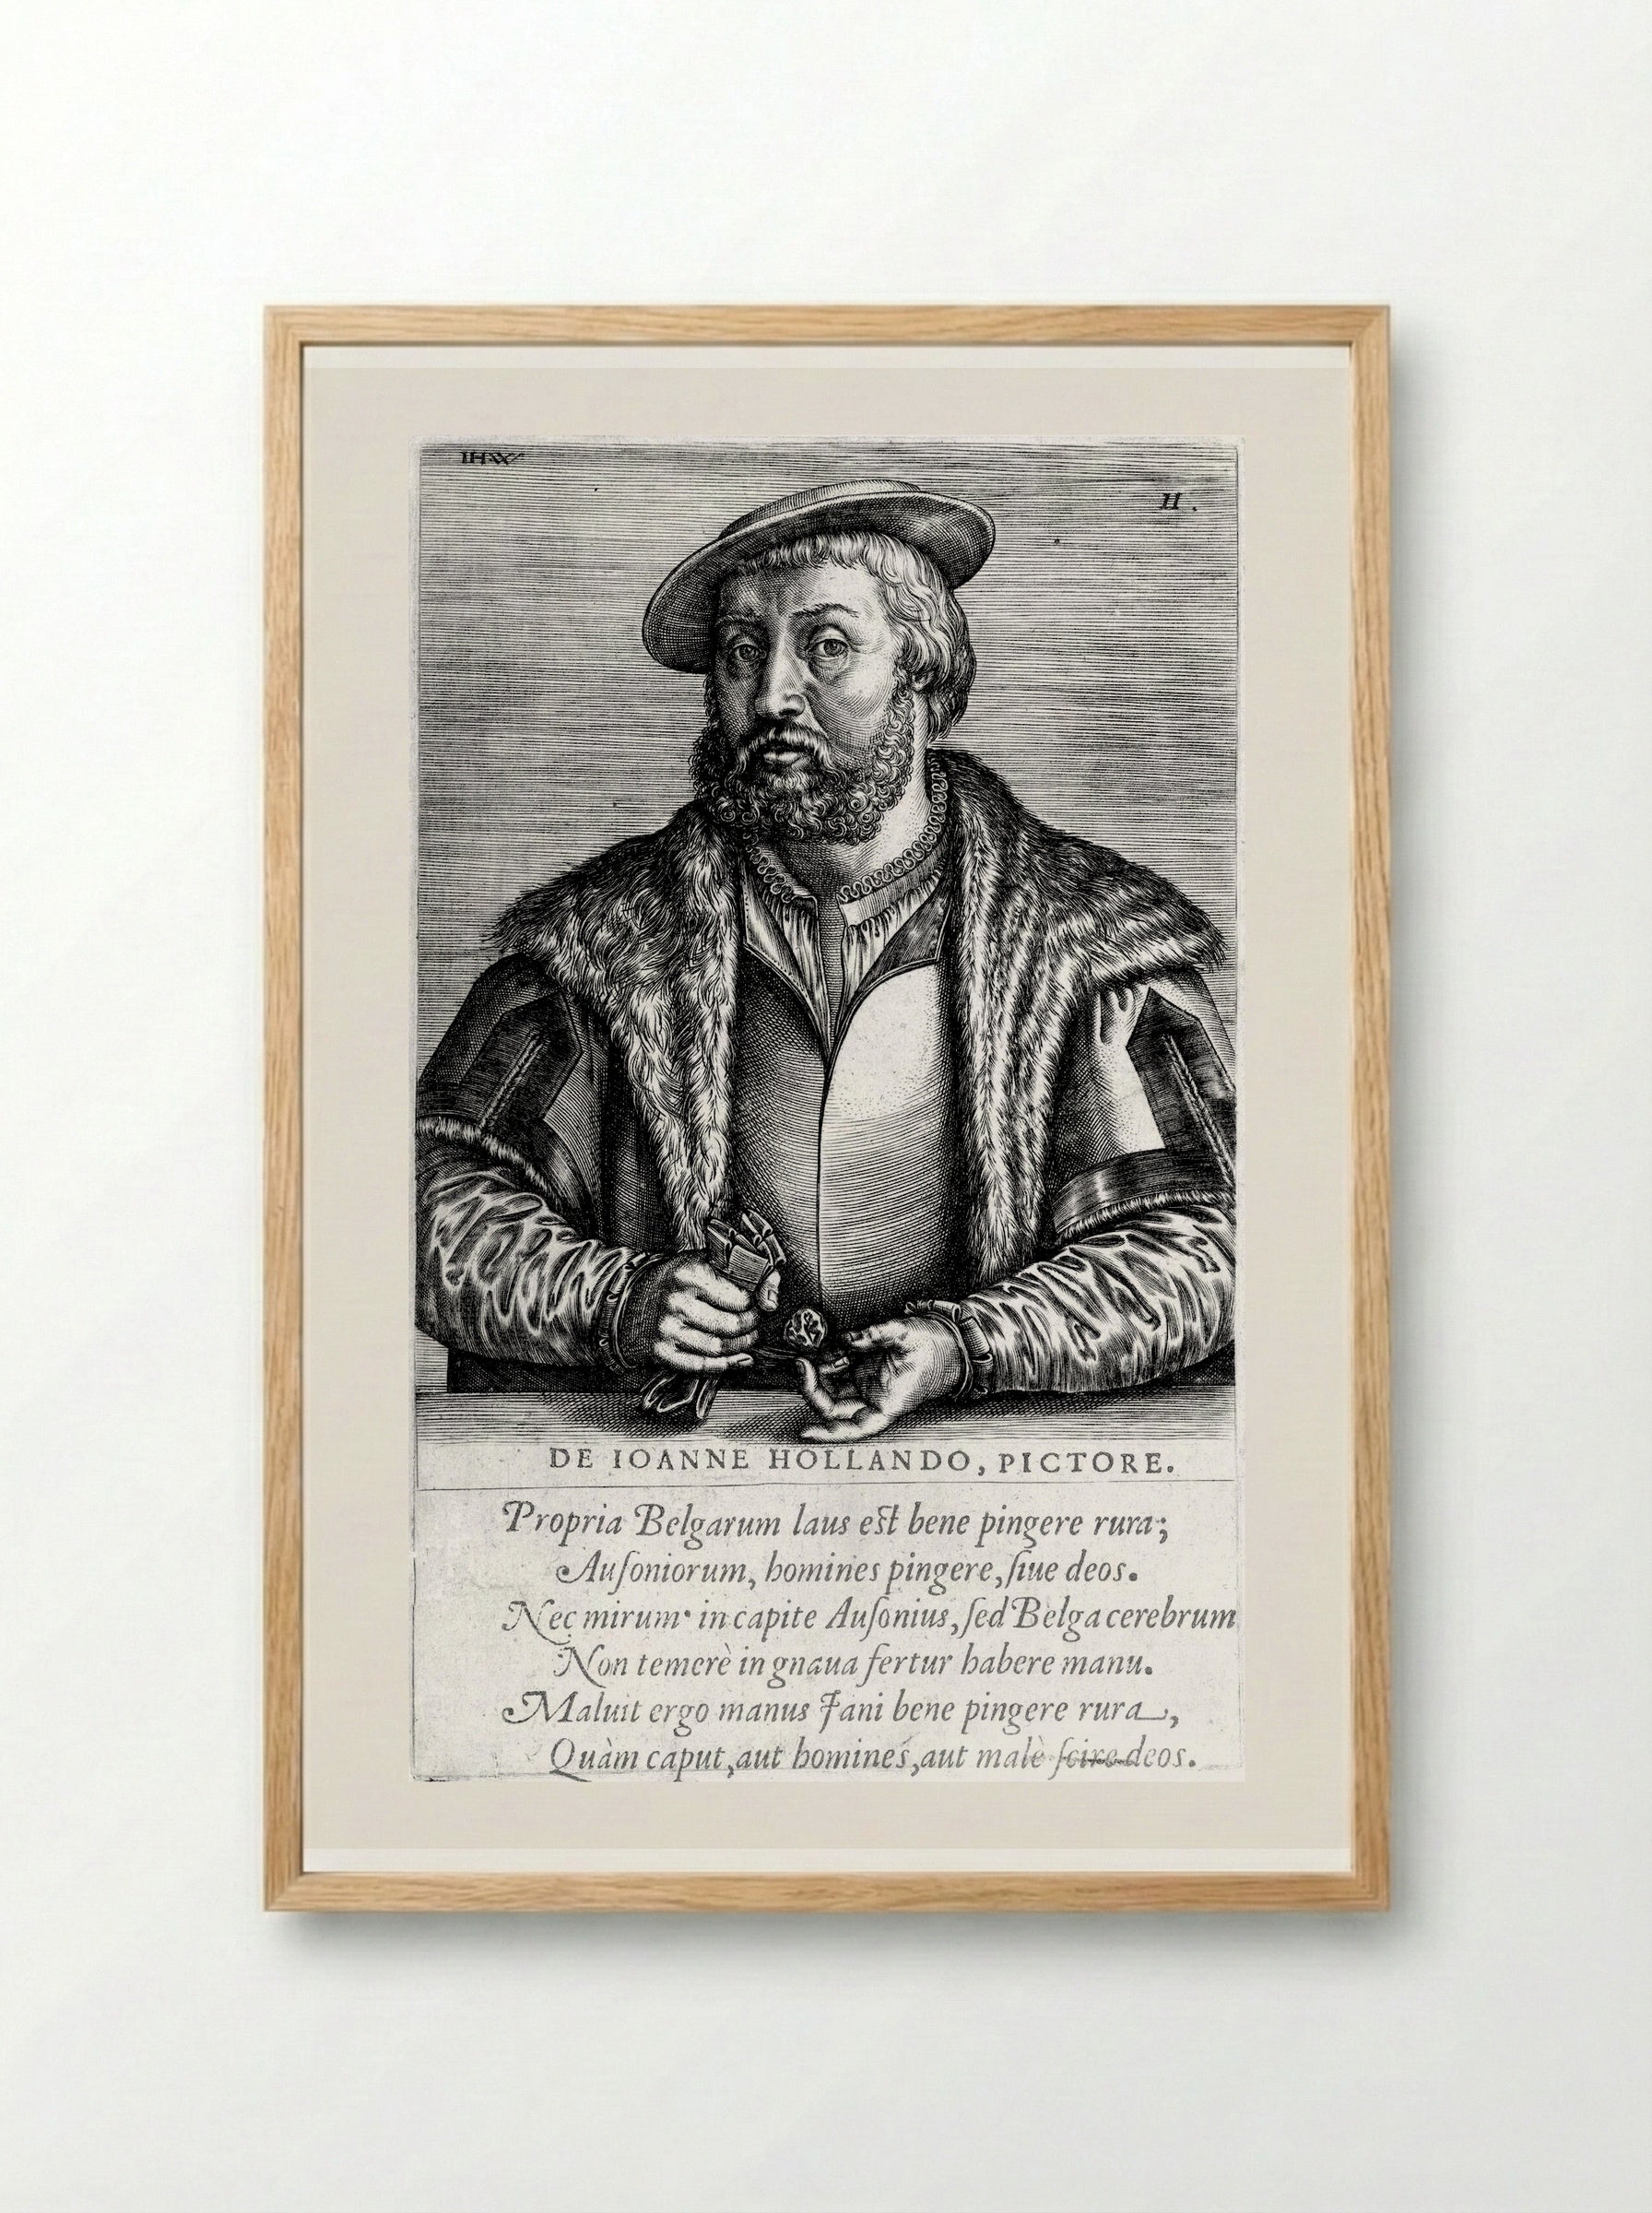 IHW
H.
DE IOANNE HOLLANDO, PICTORE.
Propria Belgarum laus est bene pingere rura;
Auſoniorum, homines pingere, ſiue deos.
Nec mirum· in capite Auſonius, ſed Belga cerebrum
Non temerè in gnaua fertur habere manu.
Maluit ergo manus Jani bene pingere rura,
Quàm caput, aut homines, aut malè ſcire deos.